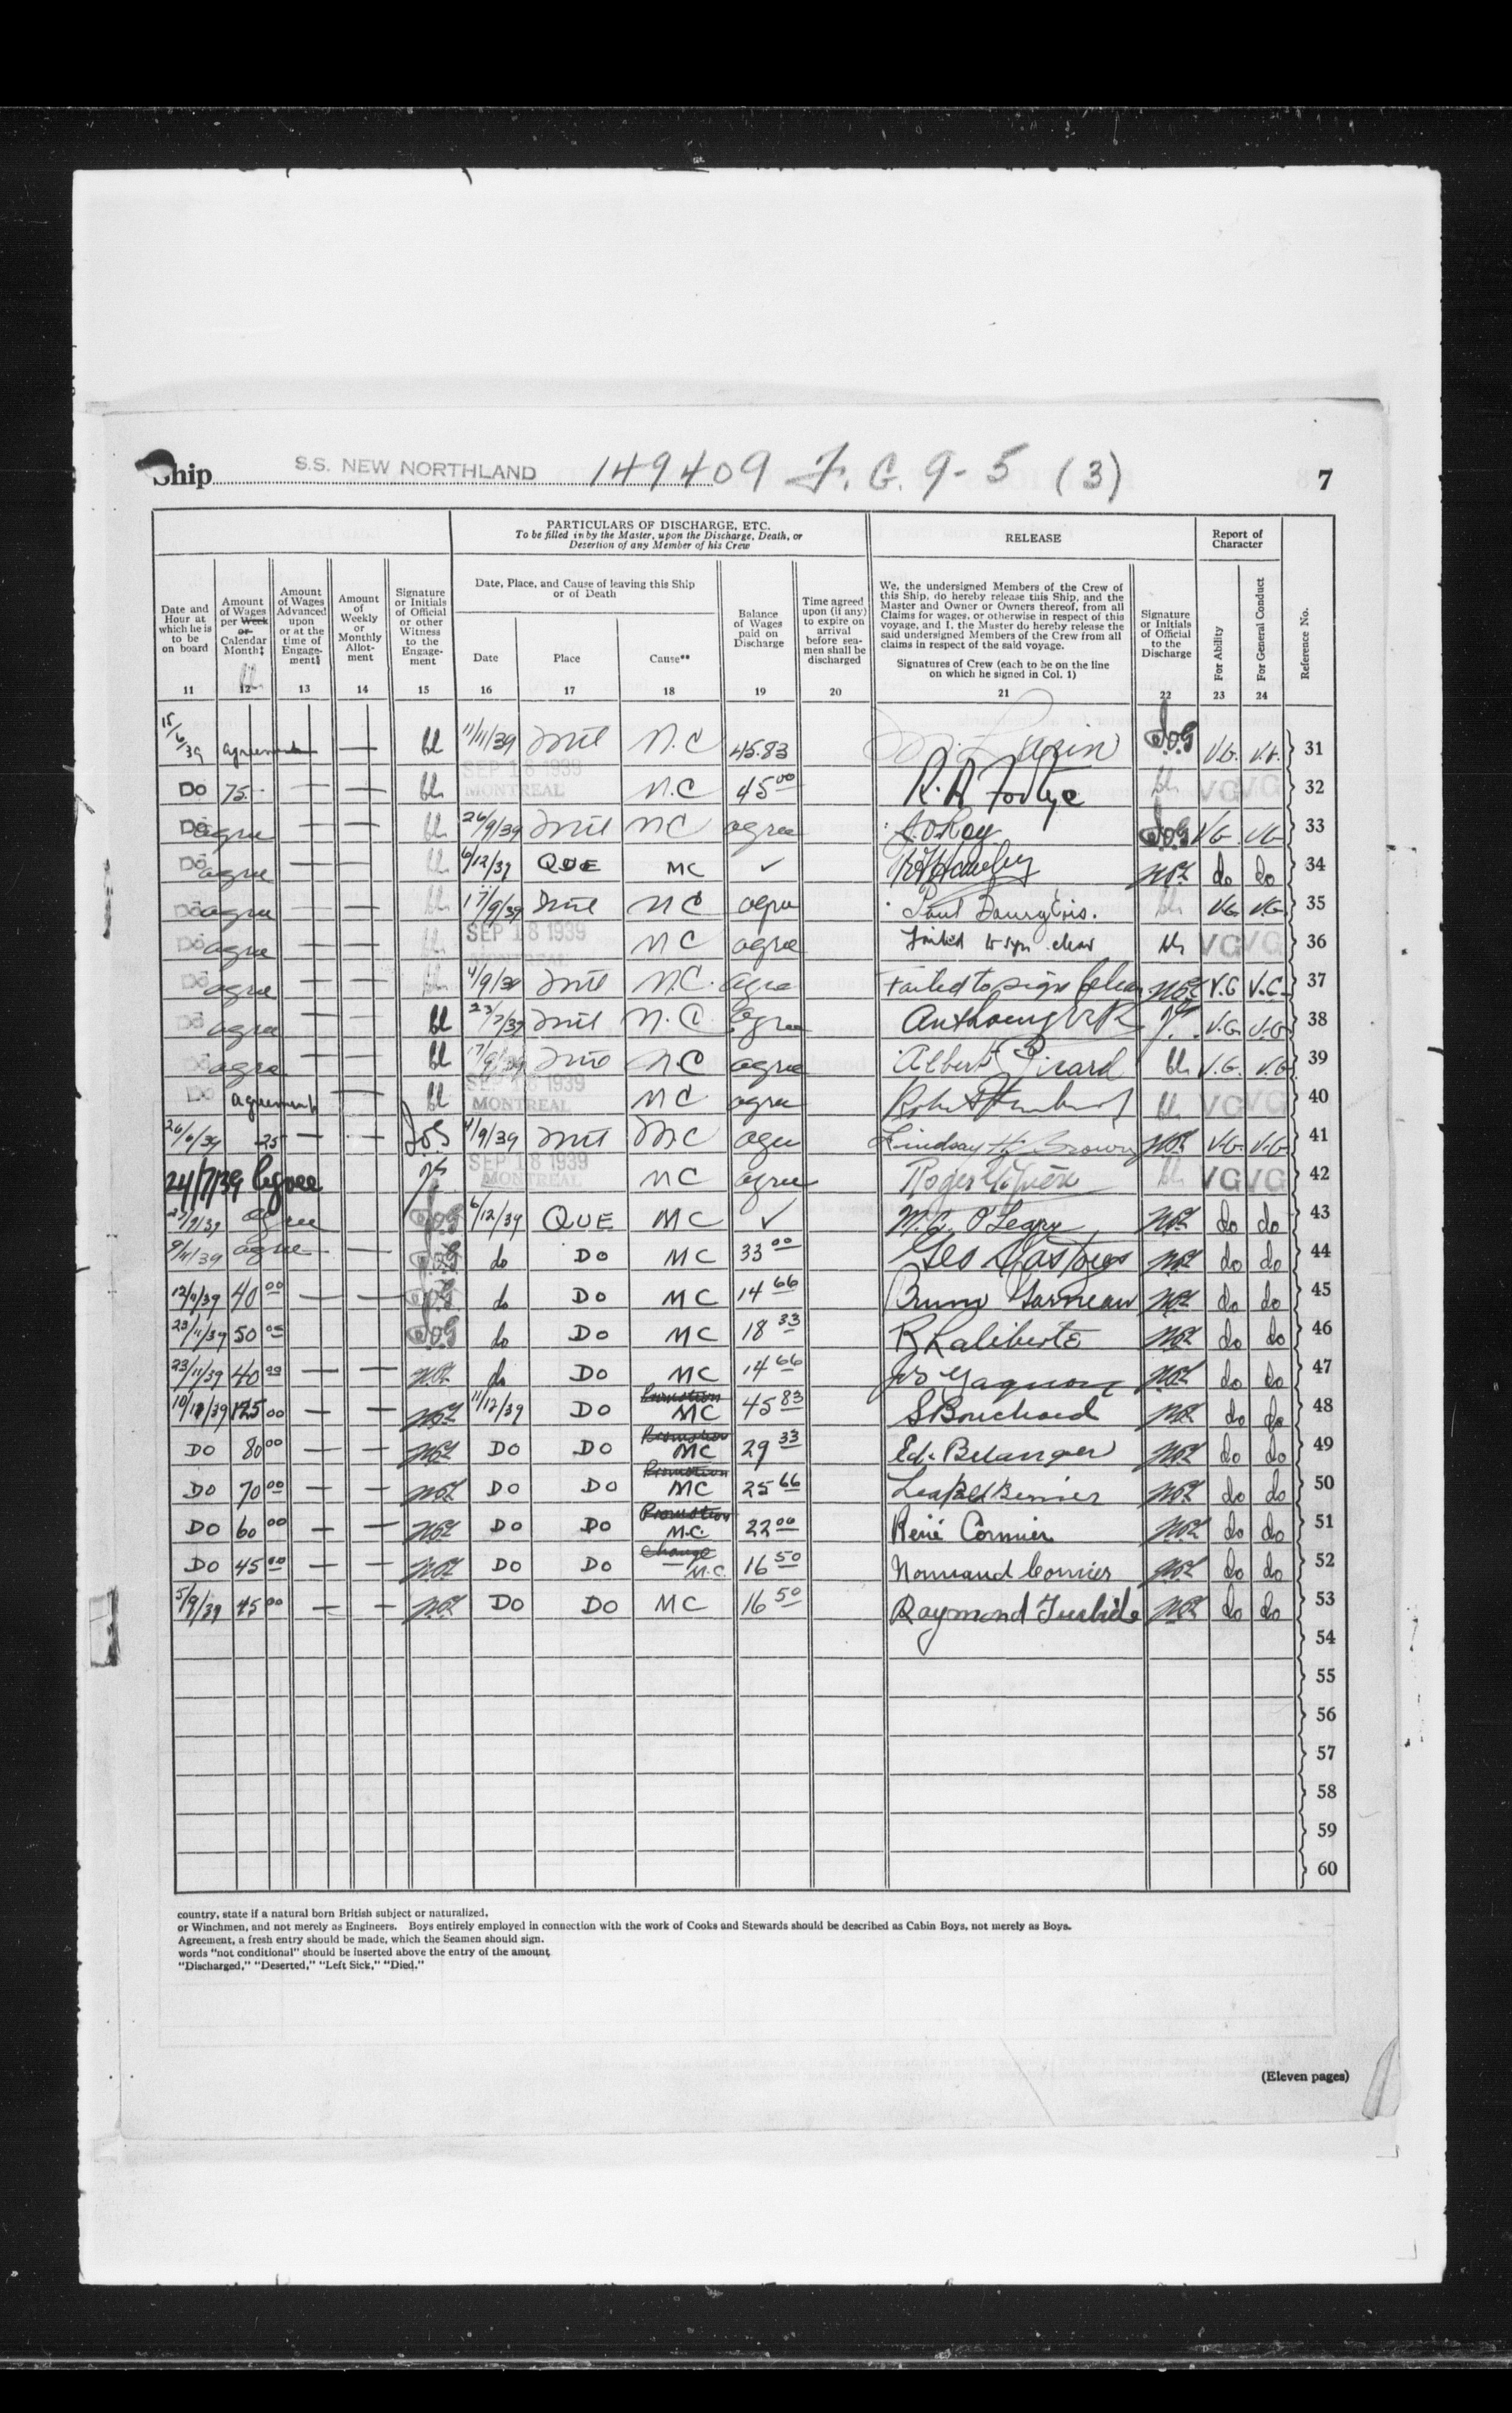 Ship S.S. NEW NORTHLAND 149409 F. G. 9-5 (3) 7
PARTICULARS OF DISCHARGE, ETC.
To be filled in by the Master, upon the Discharge, Death, or
Desertion of any Member of his Crew
RELEASE
Report of
Character
Date and
Hour at
which he is
to be
on board
11
Amount
of Wages
per Week
or
Calendar
Month‡
12
Amount
of Wages
Advanced
upon
or at the
time of
Engage-
ment§
13
Amount
of
Weekly
or
Monthly
Allot-
ment
14
Signature
or Initials
of Official
or other
Witness
to the
Engage-
ment
15
Date, Place, and Cause of leaving this Ship
or of Death
Date
16
Place
17
Cause**
18
Balance
of Wages
paid on
Discharge
19
Time agreed
upon (if any)
to expire on
arrival
before sea-
men shall be
discharged
20
We, the undersigned Members of the Crew of
this Ship, do hereby release this Ship, and the
Master and Owner or Owners thereof, from all
Claims for wages, or otherwise in respect of this
voyage, and I, the Master do hereby release the
said undersigned Members of the Crew from all
claims in respect of the said voyage.
Signatures of Crew (each to be on the line
on which he signed in Col. 1)
21
Signature
or Initials
of Official
to the
Discharge
22
For Ability
23
For General Conduct
24
Reference No.
15/6/39 agreement — — 11/11/39 Mtl M.C 45.83 V.G. V.G. 31
Do 75. — — SEP 18 1939 MONTREAL M.C 45 00 VG VG 32
Do agree — — 26/9/39 Mtl MC agree VG VG 33
Do agree — — 6/12/39 QUE MC ✓ do do 34
Do agree — — 17/9/39 Mtl MC agree Paul Bourgeois. VG. V.G. 35
Do agree — — SEP 18 1939 MONTREAL MC agree Failed to sign clear VG VG 36
Do agree — — Mtl M.C. agree Failed to sign clear V.G V.G. 37
Do agree — — Mtl M.C. agree Anthony V.G. V.G. 38
Do agree — — MC agree Albert Picard V.G. V.G. 39
Do agreement — SEP 18 1939 MONTREAL MC agree VG VG 40
26/6/39 25 — — 4/9/39 Mtl MC agree Lindsay H. Brown V.G. V.G. 41
24/7/39 agree SEP 18 1939 MONTREAL MC agree Roger VG VG 42
agree 6/12/39 QUE MC ✓ M. G. O'Leary do do 43
9/11/39 agree — — do DO MC 33 00 Geo do do 44
12/11/39 40 00 — — do DO MC 14 66 Bruno Garneau do do 45
23/11/39 50 00 do DO MC 18 33 R Laliberte do do 46
23/11/39 40 00 — — do DO MC 14 66 Jos Gagnon do do 47
125 00 — — 11/12/39 DO Promotion MC 45 83 S Bouchard do do 48
DO 80 00 — — DO DO Promotion MC 29 33 Ed. Belanger do do 49
DO 70 00 — — DO DO Promotion MC 25 66 Bernier do do 50
DO 60 00 — — DO DO Promotion M.C. 22 00 René Cormier do do 51
DO 45 00 — — DO DO Change M.C. 16 50 Normand Cormier do do 52
5/9/39 45 00 — — DO DO MC 16 50 Raymond Turbide do do 53
54
55
56
57
58
59
60
country, state if a natural born British subject or naturalized,
or Winchmen, and not merely as Engineers. Boys entirely employed in connection with the work of Cooks and Stewards should be described as Cabin Boys, not merely as Boys.
Agreement, a fresh entry should be made, which the Seamen should sign.
words "not conditional" should be inserted above the entry of the amount
"Discharged," "Deserted," "Left Sick," "Died."
(Eleven pages)